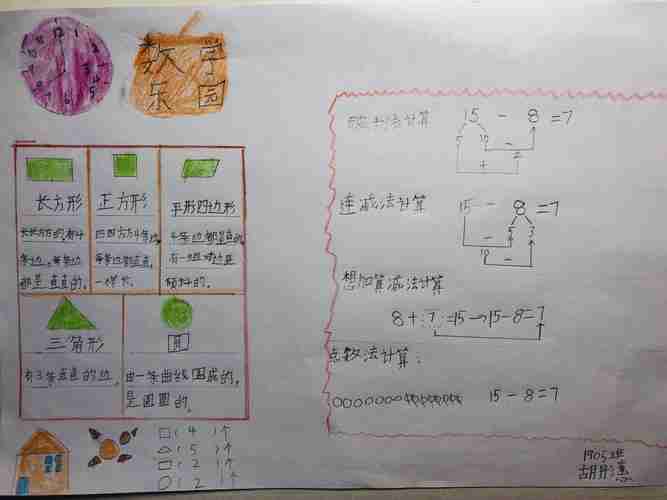 数学
乐园
12
1
2
长方形
正方形
平形四边形
长长方方的,有4
条边,每条边
都是直直的。
四四方方4条边,
每条边都直直,
一样长。
4条边都是直的,
有一组对边是
倾斜的。
三角形
圆
有3条直直的边。
由一条曲线围成的,
是圆圆的。
□:4个
△:5个
□:2个
○:2个
破十法计算
15-8=7
5 10
2
+
-
连减法计算
15-8=7
5 3
10
-
-
想加算减法计算
8+7=15→15-8=7
点数法计算:
15-8=7
1905班